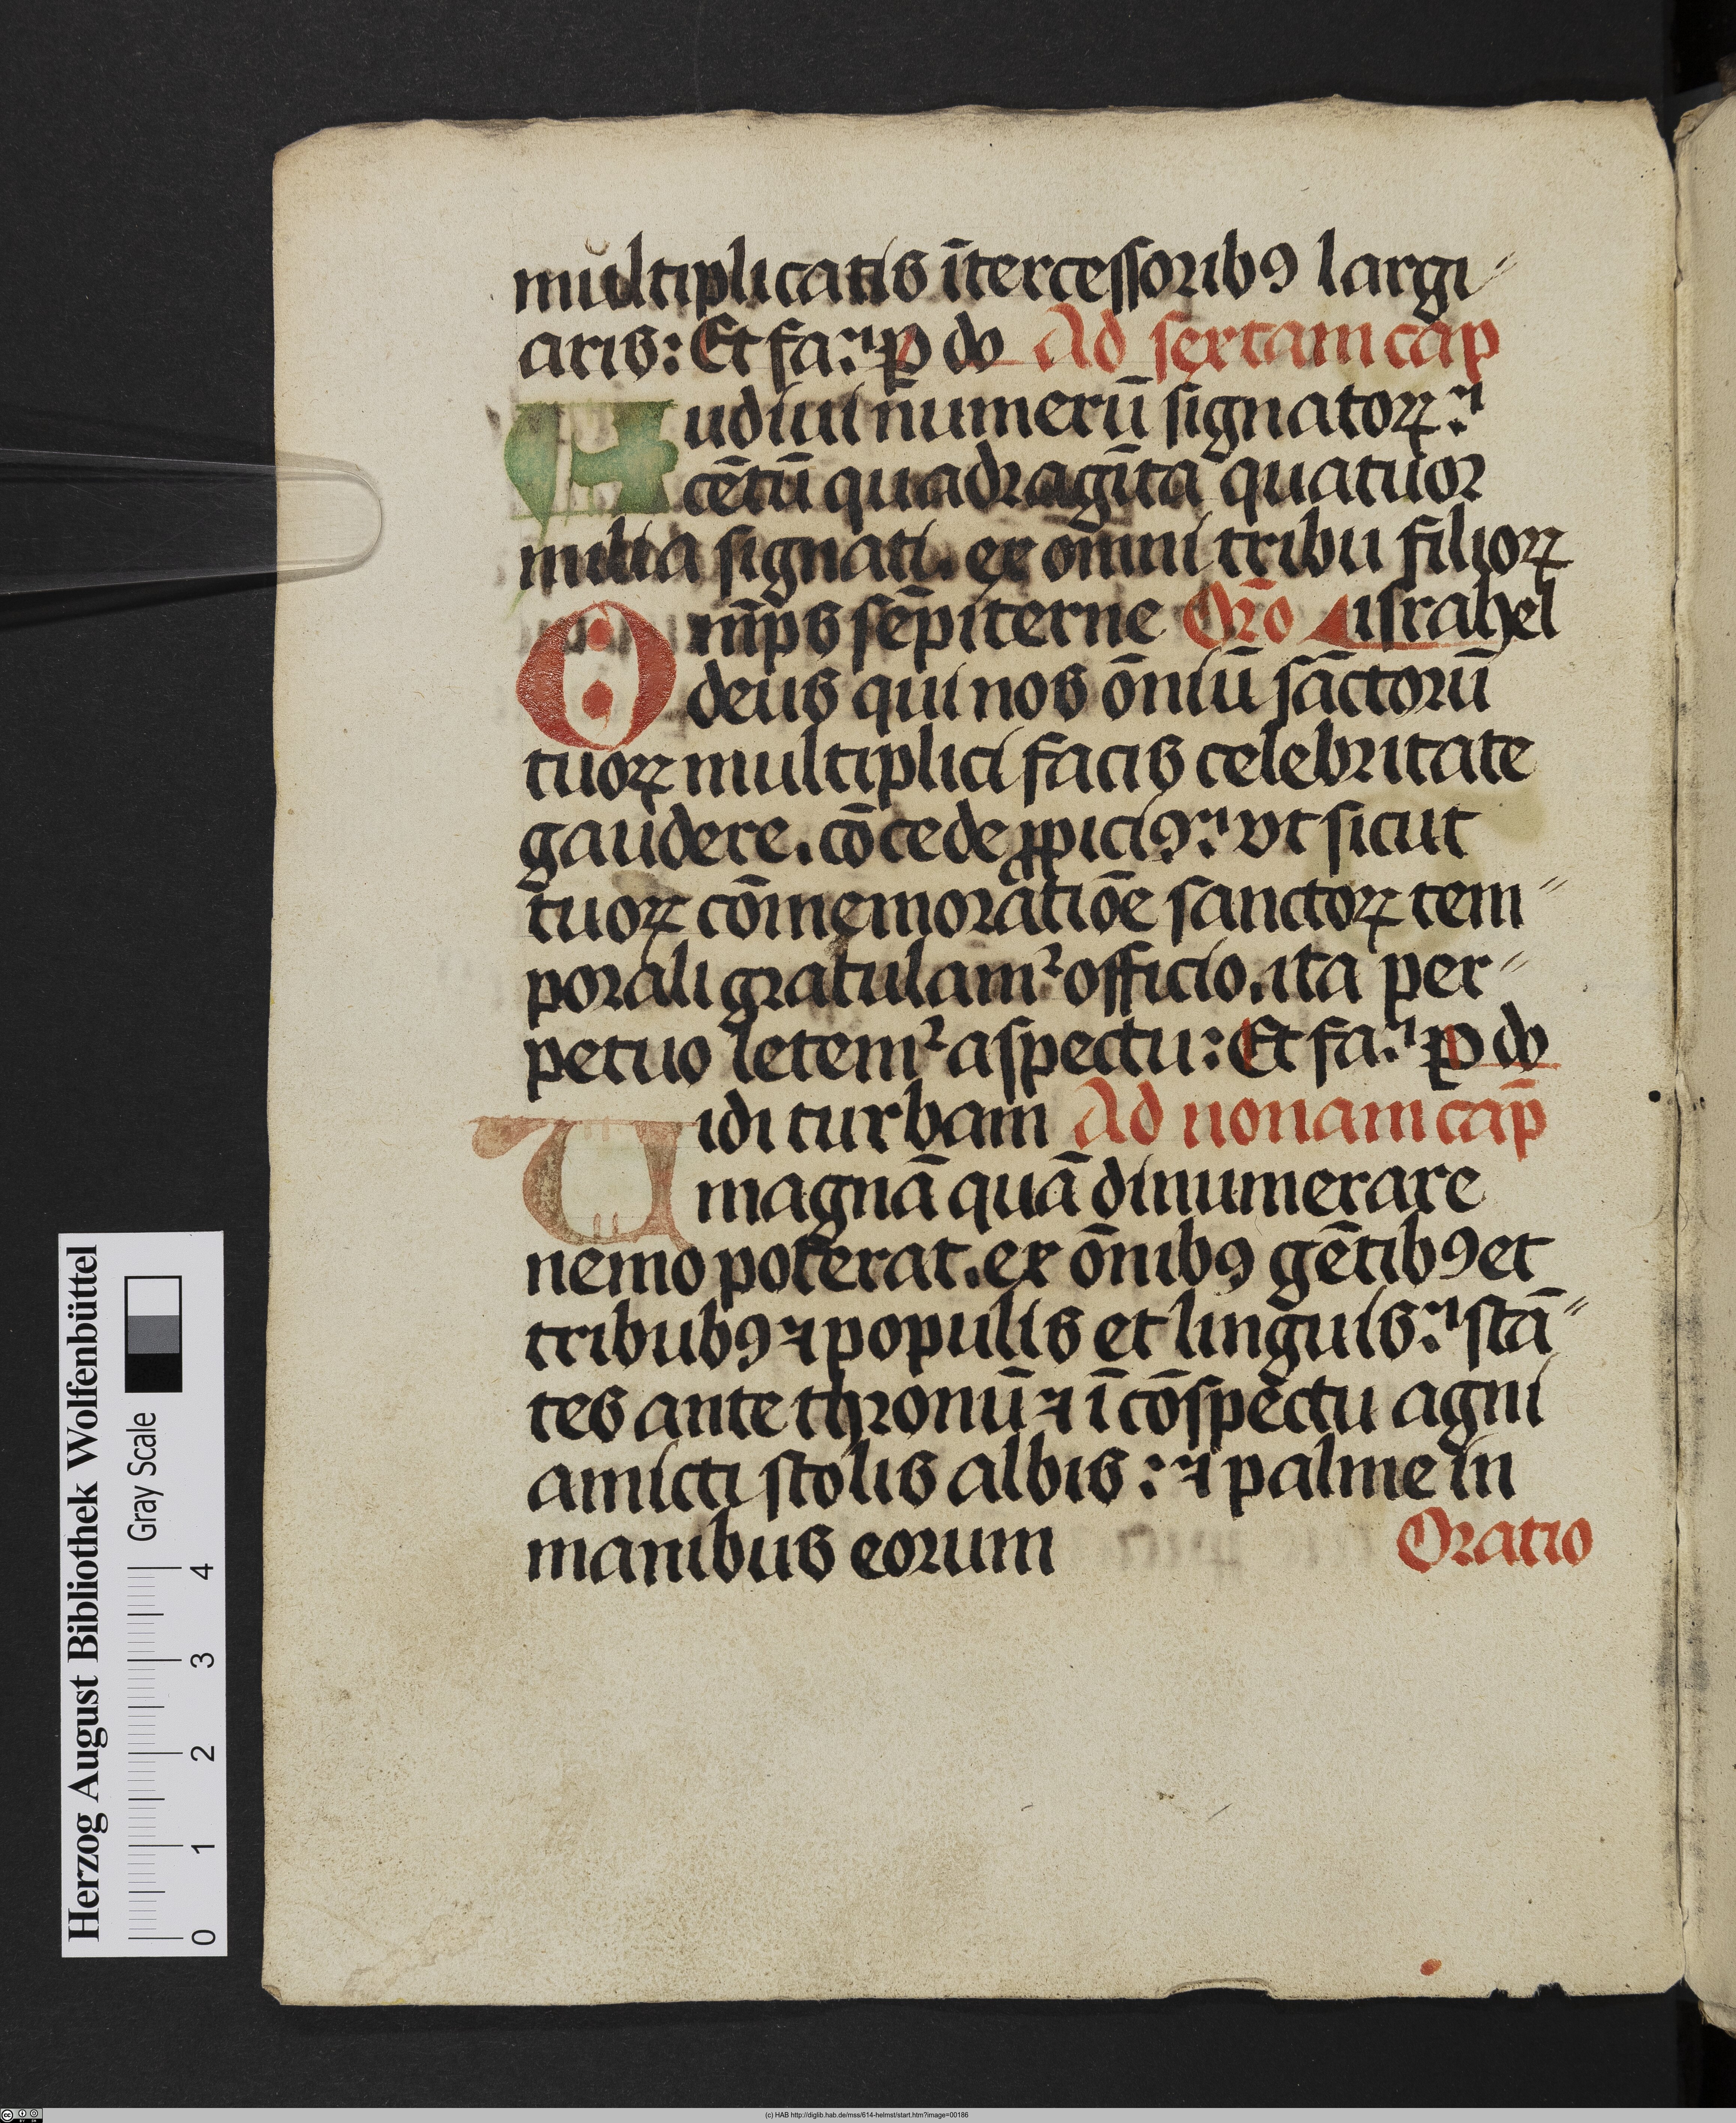 multiplicatis ītercessoribꝯ largi⸗
aris: Et fa.ꝰ p̱ do Ad sextam cap̄
Audiui numerū signatoꝝ.
cētū quadragīta quatuor
milia signati. ex omni tribu filioꝝ
Om̄ps sēpiterne Or̄o israhel
deus qui nos ōniū sāctorū
tuoꝝ multiplici facis celebritate
gaudere. cōcede ꝓpiciꝯ: vt sicut
tuoꝝ cōmemoratiōe sanctoꝝ tem⸗
porali gratulam² officio. ita per⸗
petuo letem² aspectu: Et fa. p̱ do
Uidi turbam Ad nonam cap̄
magnā quā dinumerare
nemo poterat. ex ōnibꝯ gētibꝯ et
tribubꝯ ⁊ populis et linguis: stā⸗
tes ante thronū ⁊ ī cōspectu agni
amicti stolis albis: ⁊ palme in
manibus eorum Oratio
Herzog August Bibliothek Wolfenbüttel
Gray Scale
0 1 2 3 4
(c) HAB http://diglib.hab.de/mss/614-helmst/start.htm?image=00186